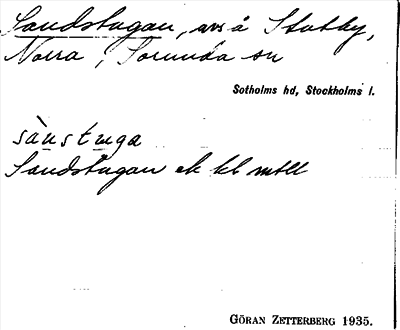 Sandstugan, avs å Stutby,
Norra, Sorunda sn
Sotholms hd, Stockholms l.
sànstuga
Sandstugan ek kl mtll
GÖRAN ZETTERBERG 1935.